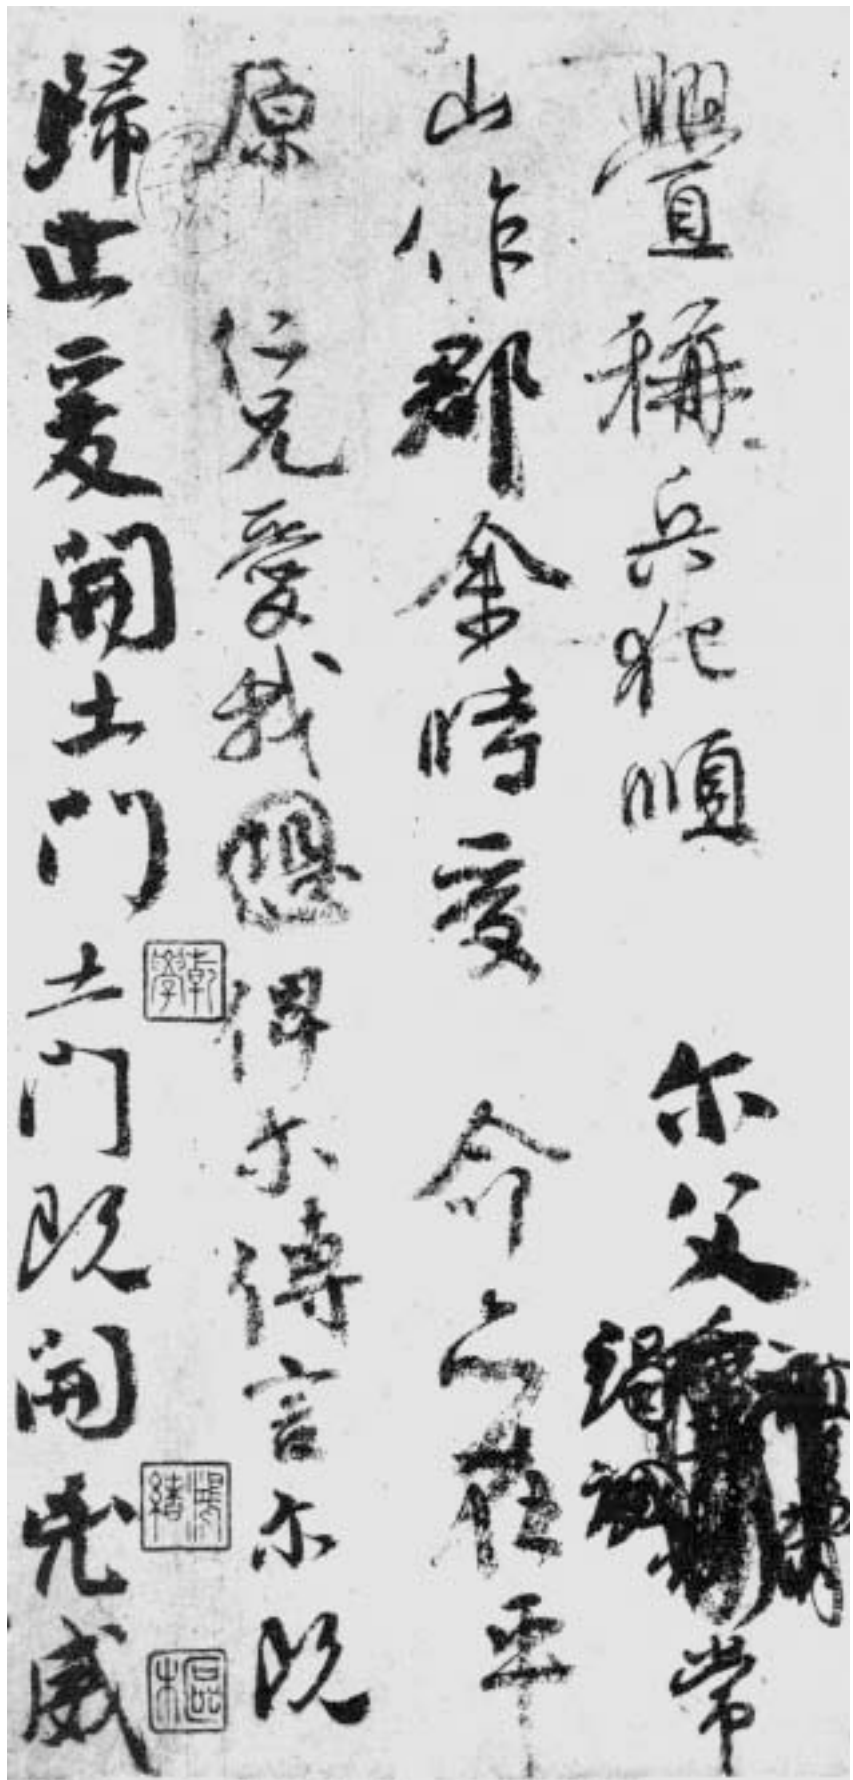 舋稱兵犯順 尒父竭誠常
山作郡余時受 命亦在平
原 仁兄愛我俾尒傳言尒既
歸止爰開土門土門既開兇威
乾學